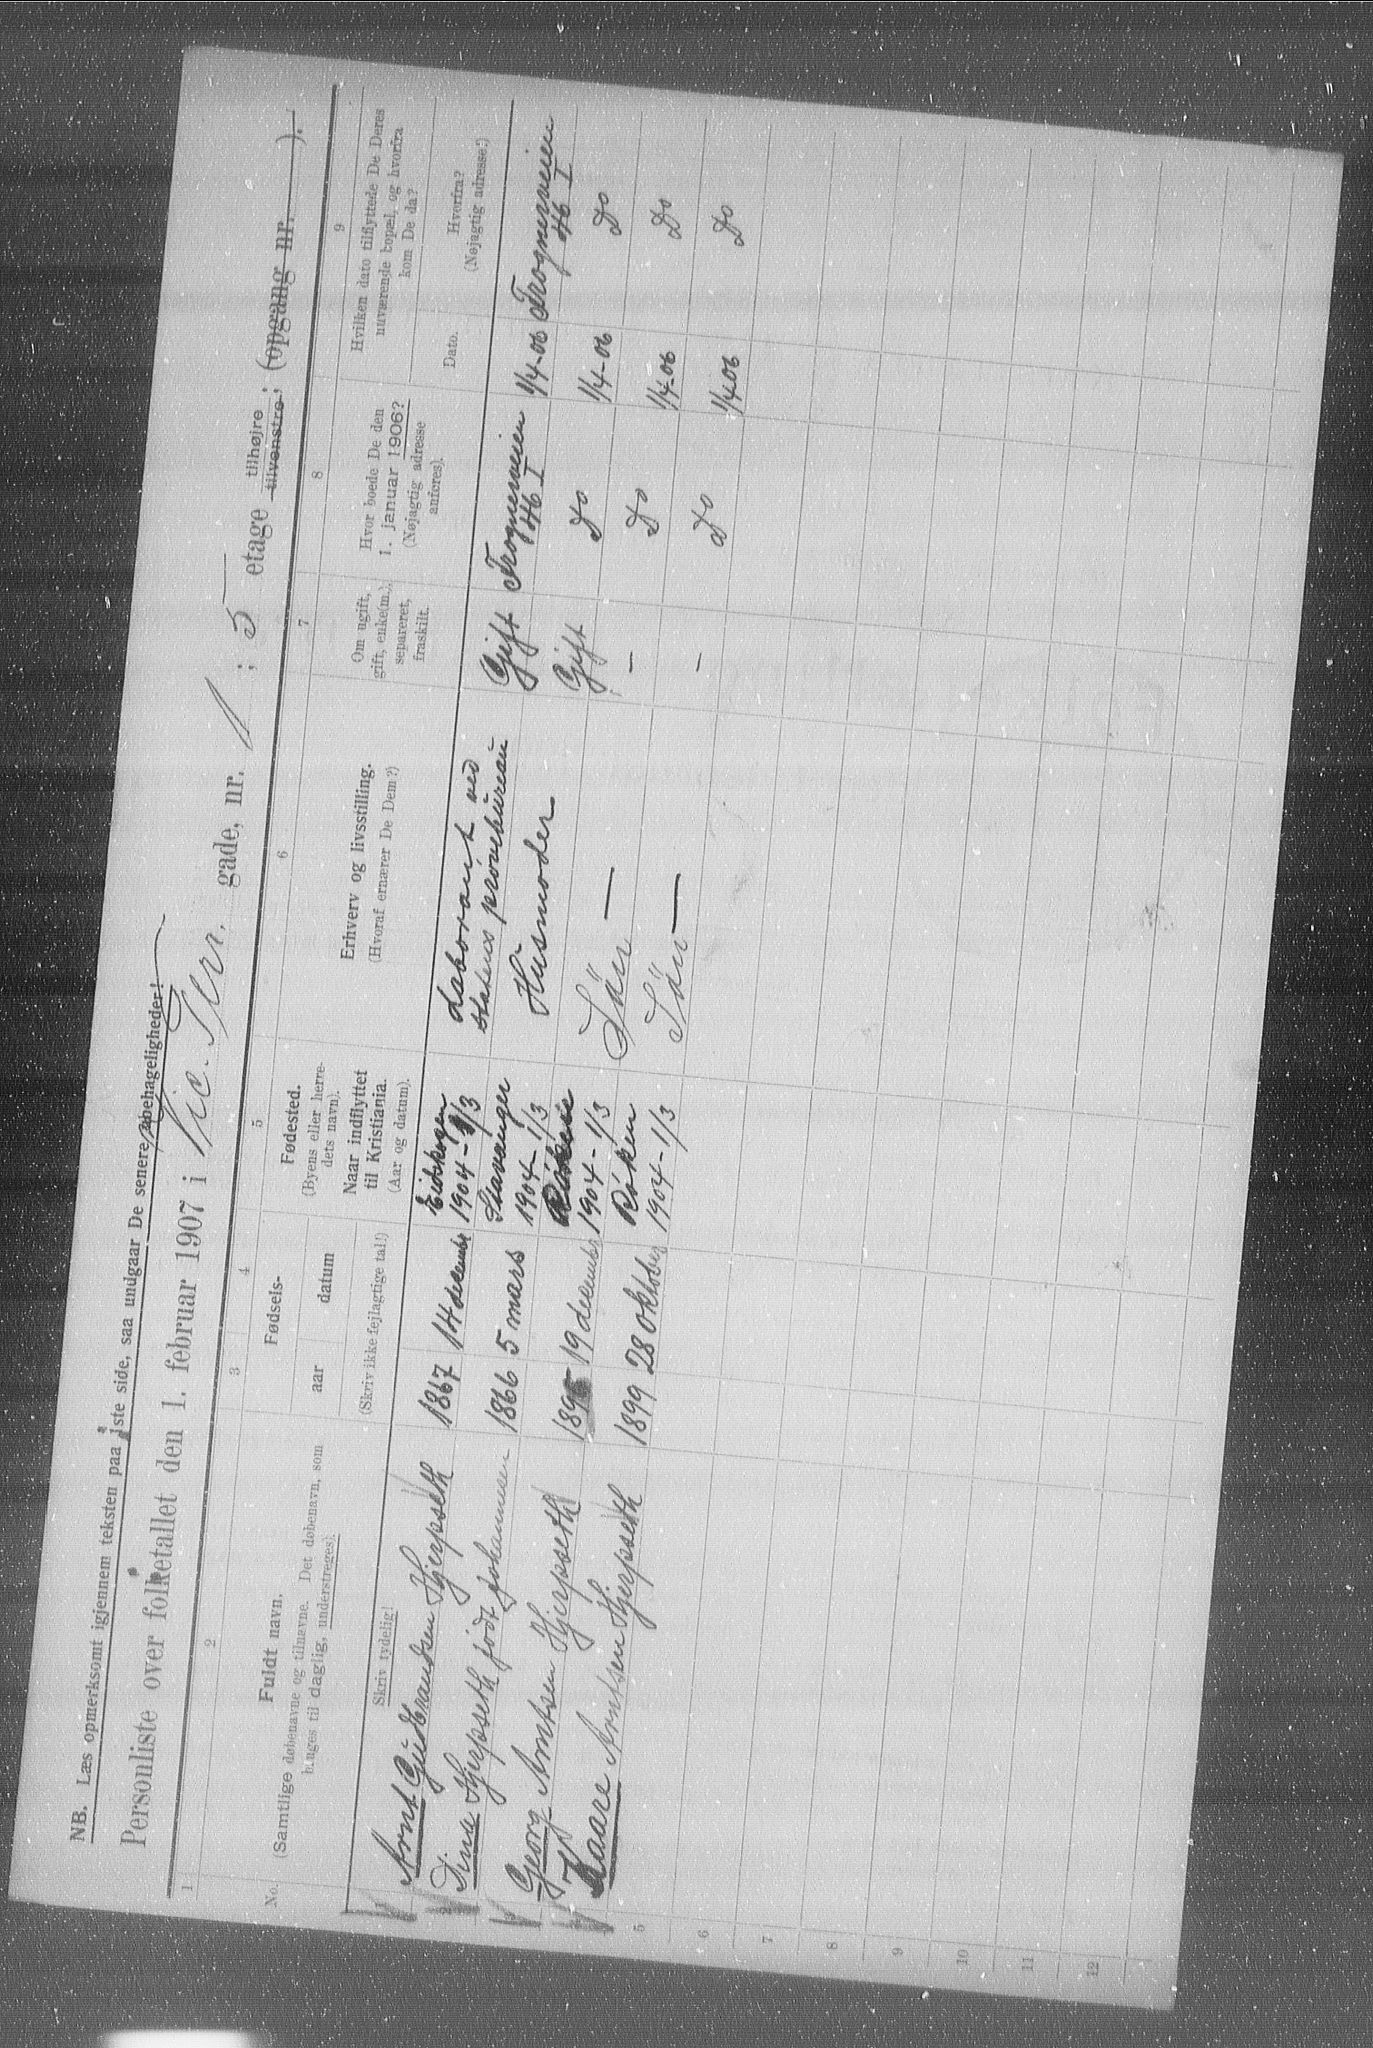 NB. Læs opmerksomt igjennem teksten paa 1ste side, saa undgaar De senere ubehageligheder!
Personliste over folketallet den 1. februar 1907 i Vic. Terr. gade, nr. 1; 5 etage tilhøjre tilvenstre; (opgang nr. ).
1 2 3 4 5 6 7 8 9
No.
Fuldt navn.
(Samtlige døbenavne og tilnavne. Det døbenavn, som
bruges til daglig, understreges).
Skriv tydelig!
Fødsels-
aar datum
(Skriv ikke fejlagtige tal!)
Fødested.
(Byens eller herre-
dets navn).
Naar indflyttet
til Kristiania.
(Aar og datum).
Erhverv og livsstilling.
(Hvoraf ernærer De Dem?)
Om ugift,
gift, enke(m.),
separeret,
fraskilt.
Hvor boede De den
1. januar 1906?
(Nøjagtig adresse
anføres).
Hvilken dato tilflyttede De Deres
nuværende bopæl, og hvorfra
kom De da?
Dato.
Hvorfra?
(Nøjagtig adresse.)
1 Arnt Gudbrandsen Hjerpseth 1867 14 december Eidskogen 1904-1/3 Laborant ved Statens prøvebureau Gift Frognerveien 46 I 1/4-06 Frognerveien 46 I
2 Dina Hjerpseth født Johannesen 1866 5 mars Stavanger 1904-1/3 Husmoder Gift Do 1/4-06 Do
3 Georg Arntsen Hjerpseth 1895 19 december Røken 1904-1/3 Sön — - Do 1/4-06 Do
4 Kaare Arntsen Hjerpseth 1899 28 oktober Røken 1904-1/3 Sön — - Do 1/4 06 Do
5
6
7
8
9
10
11
12